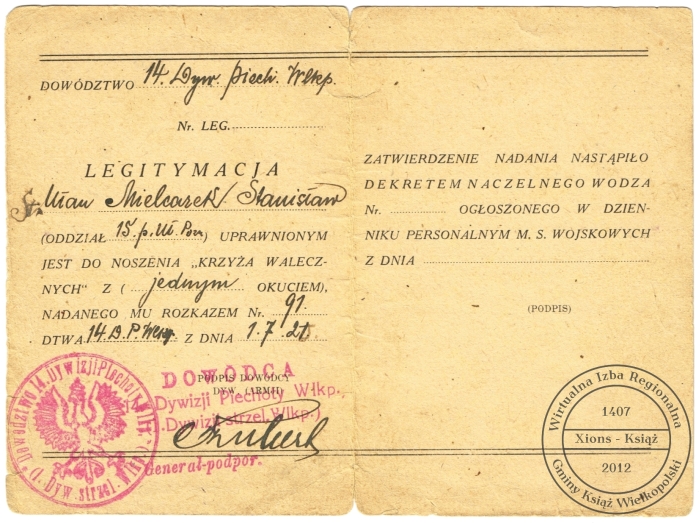 DOWÓDZTWO 14. Dyw. Piech. Wlkp.
Nr. LEG.
LEGITYMACJA
St. Ułan Mielcarek Stanisław
(ODDZIAŁ 15. p. Uł. Pozn) UPRAWNIONYM
JEST DO NOSZENIA „KRZYŻA WALECZ-
NYCH” Z ( jednym OKUCIEM),
NADANEGO MU ROZKAZEM Nr. 91.
DTWA 14. D. P. Wlkp. Z DNIA 1.7.20
PODPIS DOWÓDCY
DYW. (ARMJI)
DOWÓDCA
Dywizji Piechoty Włkp.,
Dywizji strzel. Wlkp.)
Generał-podpor.
Dowództwo 14. Dywizji Piechoty Wlkp.
(1. Dyw. strzel. Wlkp.)
ZATWIERDZENIE NADANIA NASTĄPIŁO
DEKRETEM NACZELNEGO WODZA
Nr. OGŁOSZONEGO W DZIEN-
NIKU PERSONALNYM M. S. WOJSKOWYCH
Z DNIA
(PODPIS)
Wirtualna Izba Regionalna
1407
Xions - Książ
2012
Gminy Książ Wielkopolski